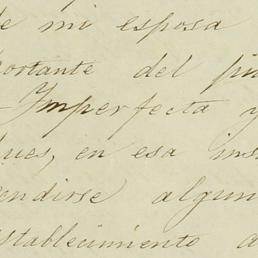 de mi esposa
portante del pu
Imperfecta y
ques, en esa ins
endirse algun
establecimiento a